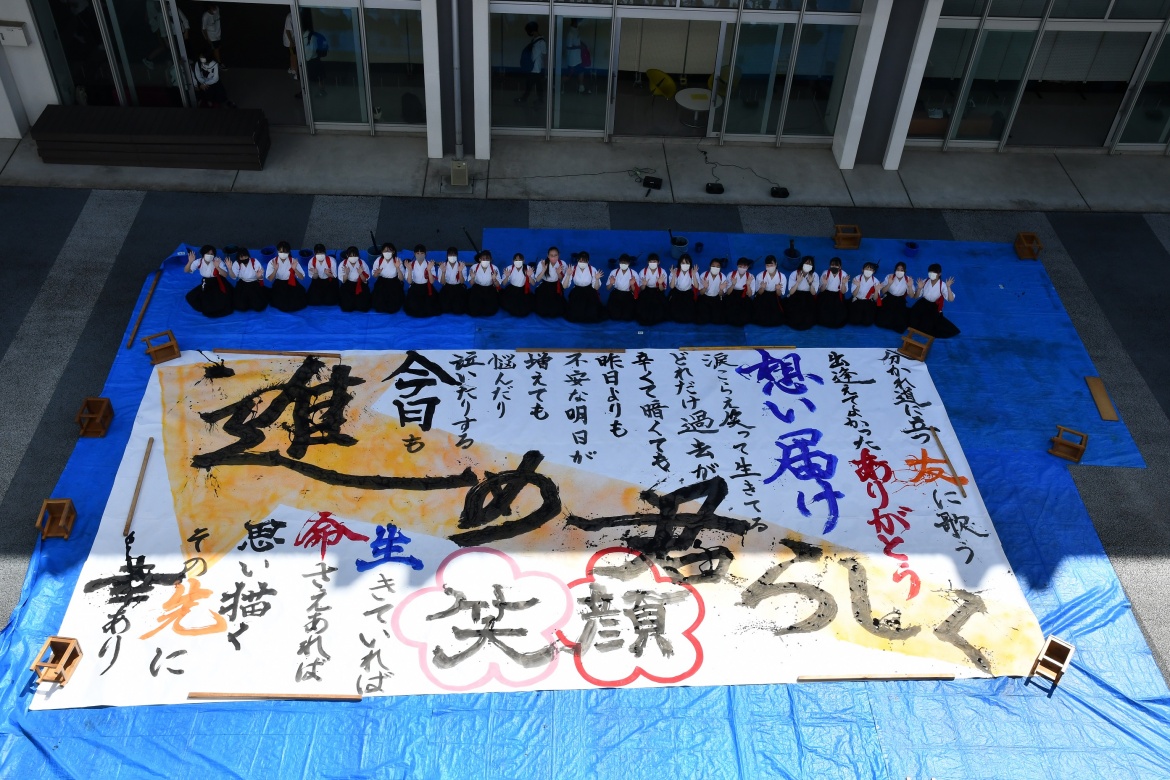 分かれ道に立つ友に歌う
出逢えてよかったありがとう
想い届け
涙こらえ って生きてる
どれだけ過去が
辛くて暗くても
昨日よりも
不安な明日が
増えても
悩んだり
泣いたりする
今日も
進め君らしく
笑顔
生きていれば
命さえあれば
思い描く
その先に
幸あり